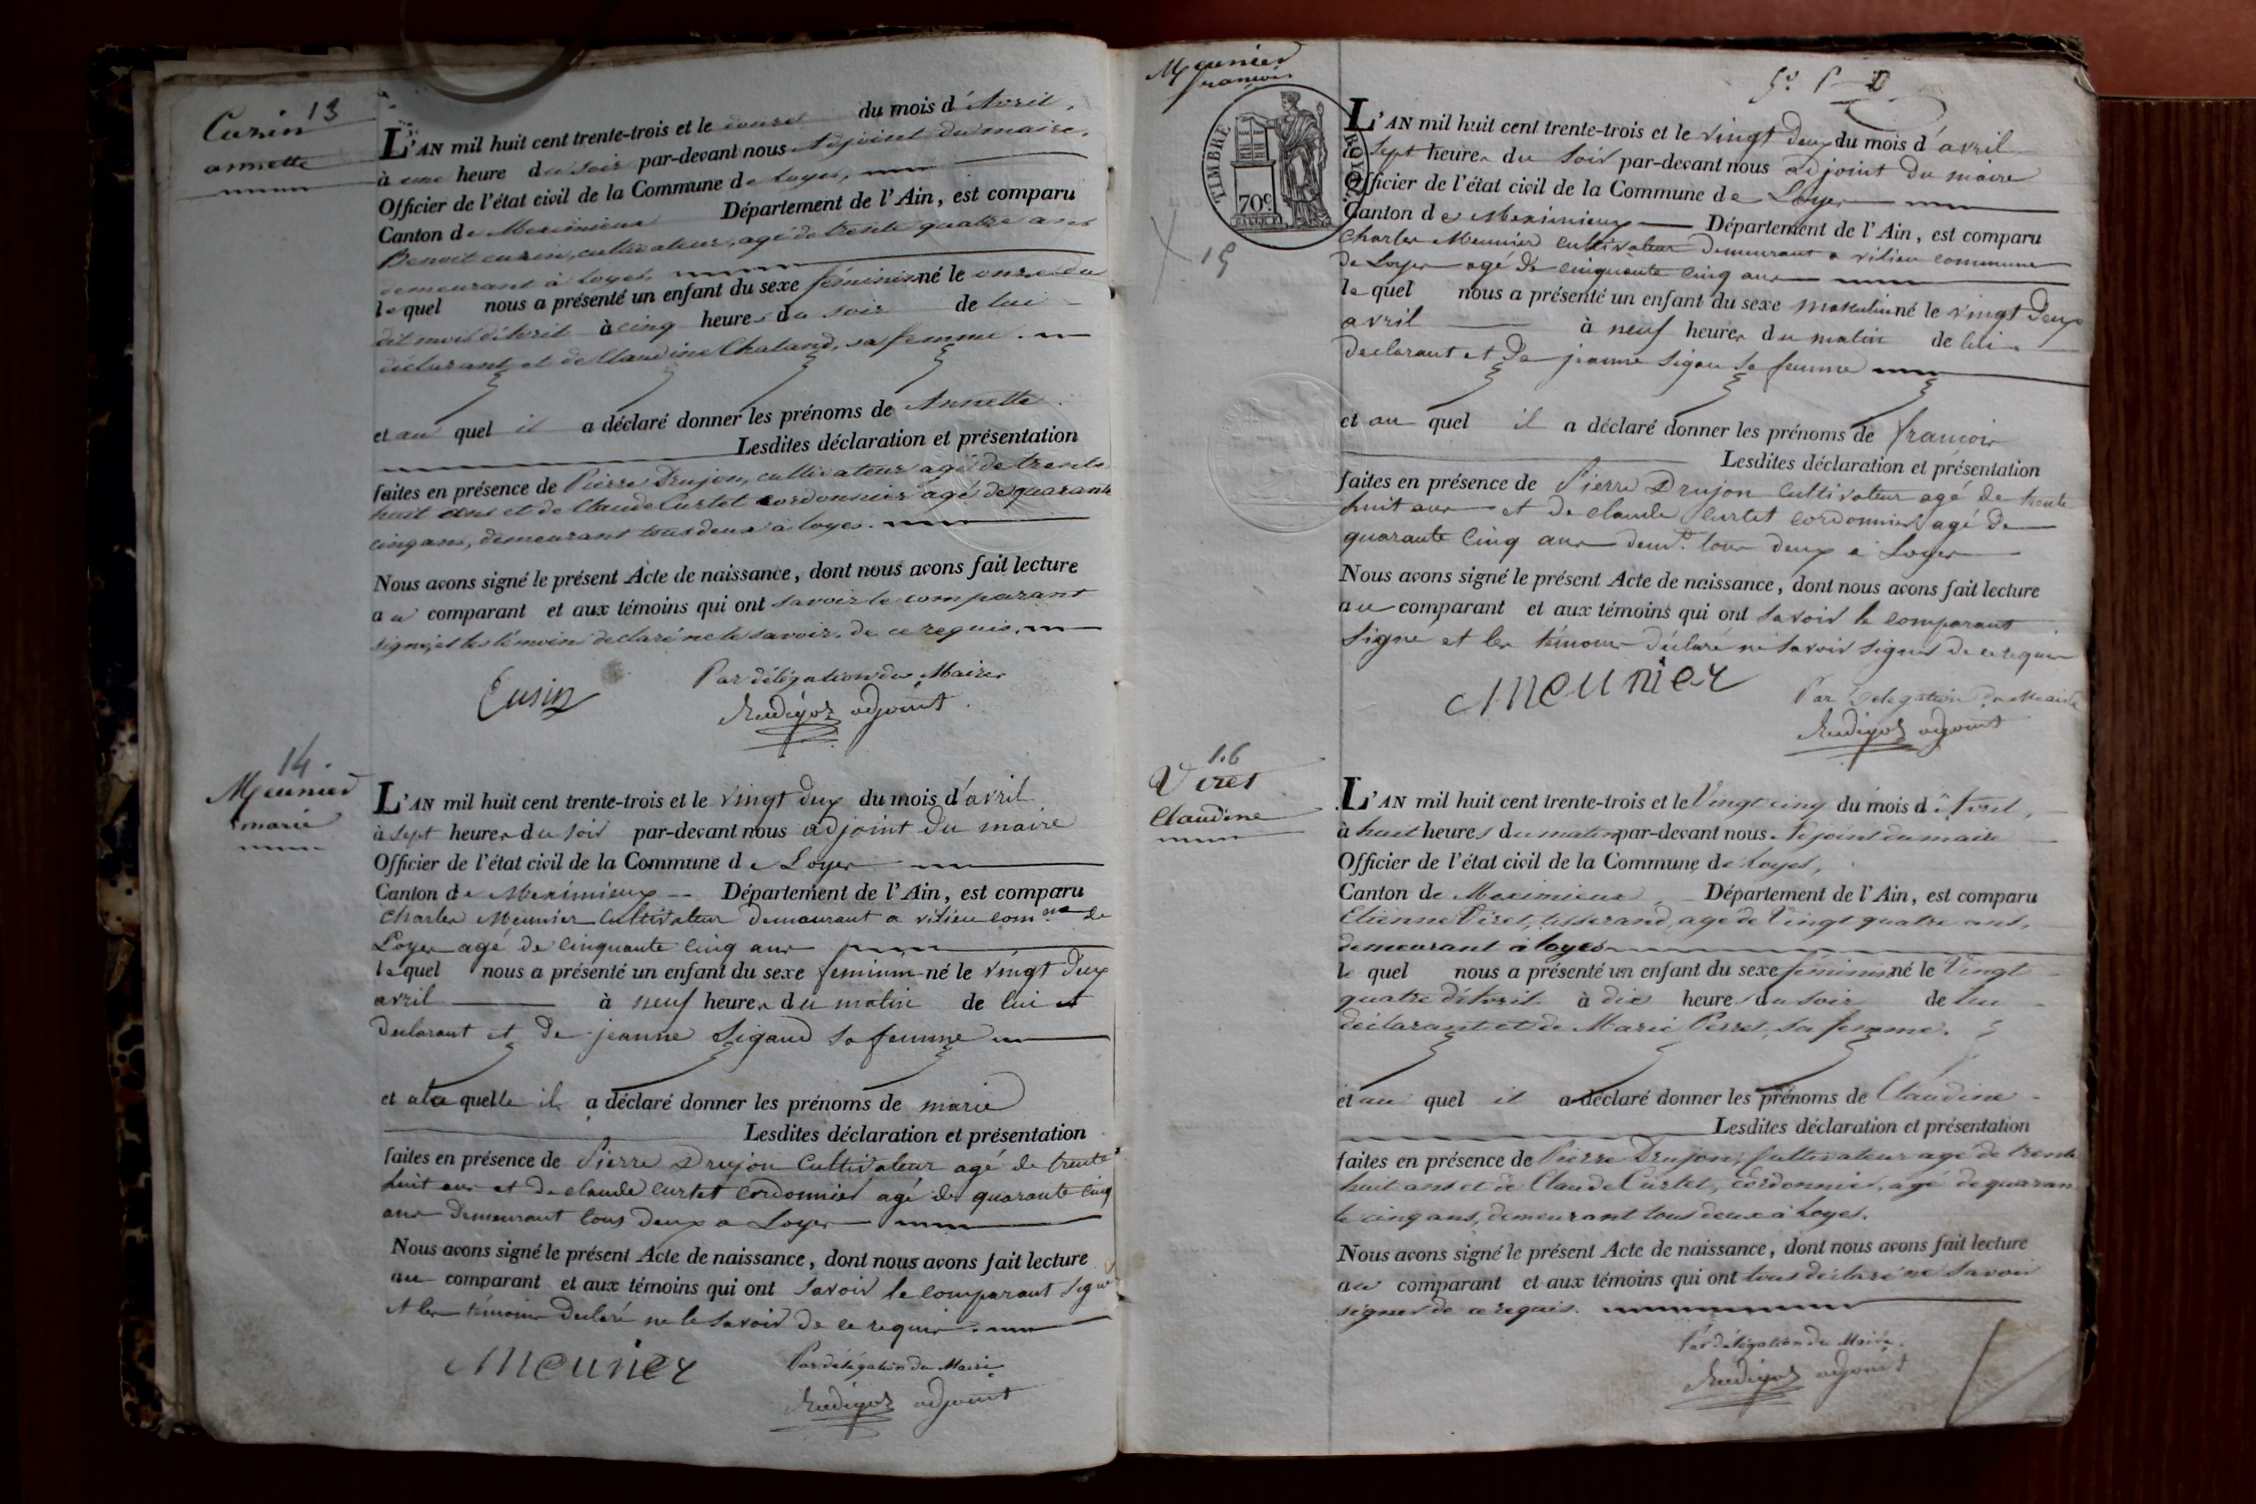 13
Cusin
annette
L'AN mil huit cent trente-trois et le douze du mois d'Avril,
à une heure du soir par-devant nous Adjoint du maire,
Officier de l'état civil de la Commune de Loyes,
Canton de Meximieux Département de l'Ain, est comparu
Benoit cusin, cultivateur, agé de trente quatre ans
demeurant à Loyes.
le quel nous a présenté un enfant du sexe féminin né le onze du
dit mois d'Avril à cinq heures du soir de lui
déclarant et de Claudine Chaland, sa femme.
et au quel il a déclaré donner les prénoms de Annette.
Lesdites déclaration et présentation
faites en présence de Pierre Drujon, cultivateur agé de trente
huit ans et de Claude Curtet cordonnier agé de quarante
cinq ans, demeurant tous deux à loyes.
Nous avons signé le présent Acte de naissance, dont nous avons fait lecture
au comparant et aux témoins qui ont savoir le comparant
signé, et les témoin declaré ne le savoir. de ce requis.
Cusin
Par délégation du Maire
adjoint
14.
Meunier
marie
L'AN mil huit cent trente-trois et le vingt deux du mois d'avril
à sept heures du soir par-devant nous adjoint du maire
Officier de l'état civil de la Commune de Loyes
Canton de Meximieux Département de l'Ain, est comparu
Charles Meunier Cultivateur demeurant a vilieu comne de
Loyes agé de cinquante cinq ans
le quel nous a présenté un enfant du sexe feminin né le vingt deux
avril à neuf heures du matin de lui et
declarant et de jeanne Sigaud sa femme
et a la quelle il a déclaré donner les prénoms de marie
Lesdites déclaration et présentation
faites en présence de Pierre Drujon Cultivateur agé de trente
huit ans et de claude curtet cordonnier agé de quarante cinq
ans demeurant tous deux a Loyes
Nous avons signé le présent Acte de naissance, dont nous avons fait lecture
au comparant et aux témoins qui ont savoir le comparant signé
et les témoins declaré ne le savoir de ce requis.
Meunier
Par délégation du Maire
adjoint
Meunier
francois
TIMBRE ROYAL
70c
15
L'AN mil huit cent trente-trois et le vingt deux du mois d'avril
à sept heures du soir par-devant nous adjoint du maire
Officier de l'état civil de la Commune de Loyes
Canton de Meximieux Département de l'Ain, est comparu
Charles Meunier cultivateur demeurant a vilieu commune
de Loyes agé de cinquante cinq ans
le quel nous a présenté un enfant du sexe masculin né le vingt deux
avril à neuf heures du matin de lui
declarant et de jeanne sigau sa femme
et au quel il a déclaré donner les prénoms de francois
Lesdites déclaration et présentation
faites en présence de Pierre Drujon Cultivateur agé de trente
huit ans et de claude curtet cordonnier agé de
quarante cinq ans demt. tous deux a Loyes
Nous avons signé le présent Acte de naissance, dont nous avons fait lecture
au comparant et aux témoins qui ont savoir le comparant
signé et les témoins déclaré ne savoir signer de ce requis
Meunier
Par delegation du Maire
adjoint
16
Viret
Claudine
L'AN mil huit cent trente-trois et le Vingt cinq du mois d'Avril,
à huit heures du matin par-devant nous Adjoint du maire
Officier de l'état civil de la Commune de Loyes,
Canton de Meximieux Département de l'Ain, est comparu
Etienne Viret, tisserand, agé de Vingt quatre ans,
demeurant à loyes
le quel nous a présenté un enfant du sexe féminin né le Vingt
quatre d'Avril à dix heures du soir de lui
déclarant et de Marie Perret, sa femme.
et au quel il a déclaré donner les prénoms de Claudine
Lesdites déclaration et présentation
faites en présence de Pierre Drujon, Cultivateur agé de trente
huit ans et de Claude Curtet, Cordonnier, agé de quaran
te cinq ans, demeurant tous deux à Loyes.
Nous avons signé le présent Acte de naissance, dont nous avons fait lecture
au comparant et aux témoins qui ont tous déclaré ne savoir
signer de ce requis.
Par délégation du Maire.
adjoint